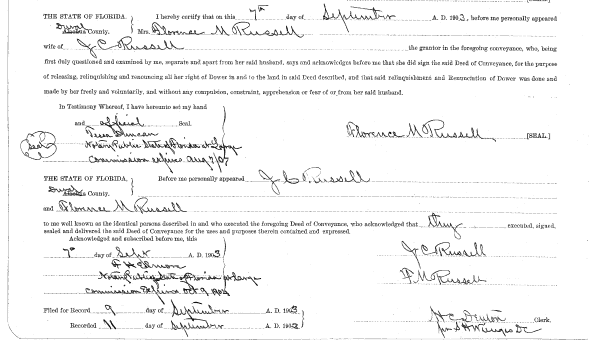 THE STATE OF FLORIDA, I hereby certify that on this 7th day of September A. D. 1903, before me personally appeared
Duval County. Mrs. Florence M Russell
wife of J C Russell the grantor in the foregoing conveyance, who, being
first duly questioned and examined by me, separate and apart from her said husband, says and acknowledges before me that she did sign the said Deed of Conveyance, for the purpose
of releasing, relinquishing and renouncing all her right of Dower in and to the land in said Deed described, and that said relinquishment and Renunciation of Dower was done and
made by her freely and voluntarily, and without any compulsion, constraint, apprehension or fear of or from her said husband.
In Testimony Whereof, I have hereunto set my hand
and official Seal.
Florence M Russell [SEAL]
Seal
Notary Public State of Florida at Large
Commission expires Aug 7/07
THE STATE OF FLORIDA, Before me personally appeared J C Russell
Duval County.
and Florence M Russell
to me well known as the identical persons described in and who executed the foregoing Deed of Conveyance, who acknowledged that they executed, signed,
sealed and delivered the said Deed of Conveyance for the uses and purposes therein contained and expressed.
Acknowledged and subscribed before me, this
7th day of Sept A. D. 1903
J C Russell
Notary Public State of Florida at Large
F M Russell
Commission Expires Oct 9
Filed for Record 9 day of September A. D. 1903
Recorded 11 day of September A. D. 190
Clerk.